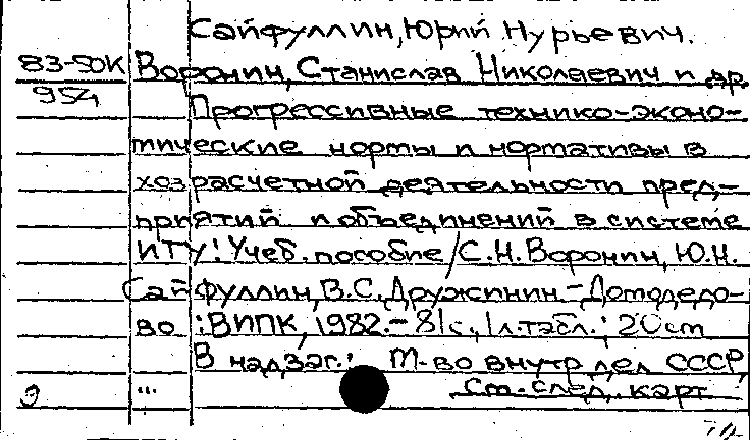 Сайфуллин, Юрий Нурьевич.
83-50К Воронин, Станислав Николаевич и др.
954 Прогрессивные технико-эконо-
мические нормы и нормативы в
хозрасчетной деятельности пред-
приятий и объединений в системе
ИТУ: Учеб. пособие / С.Н. Воронин, Ю.Н.
Сайфуллин, В.С. Дружинин. - Домодедо-
во : ВИПК, 1982. - 81 с., 1 л. табл.; 20 см
В надзаг.: М-во внутр. дел СССР,
См. след. карт.